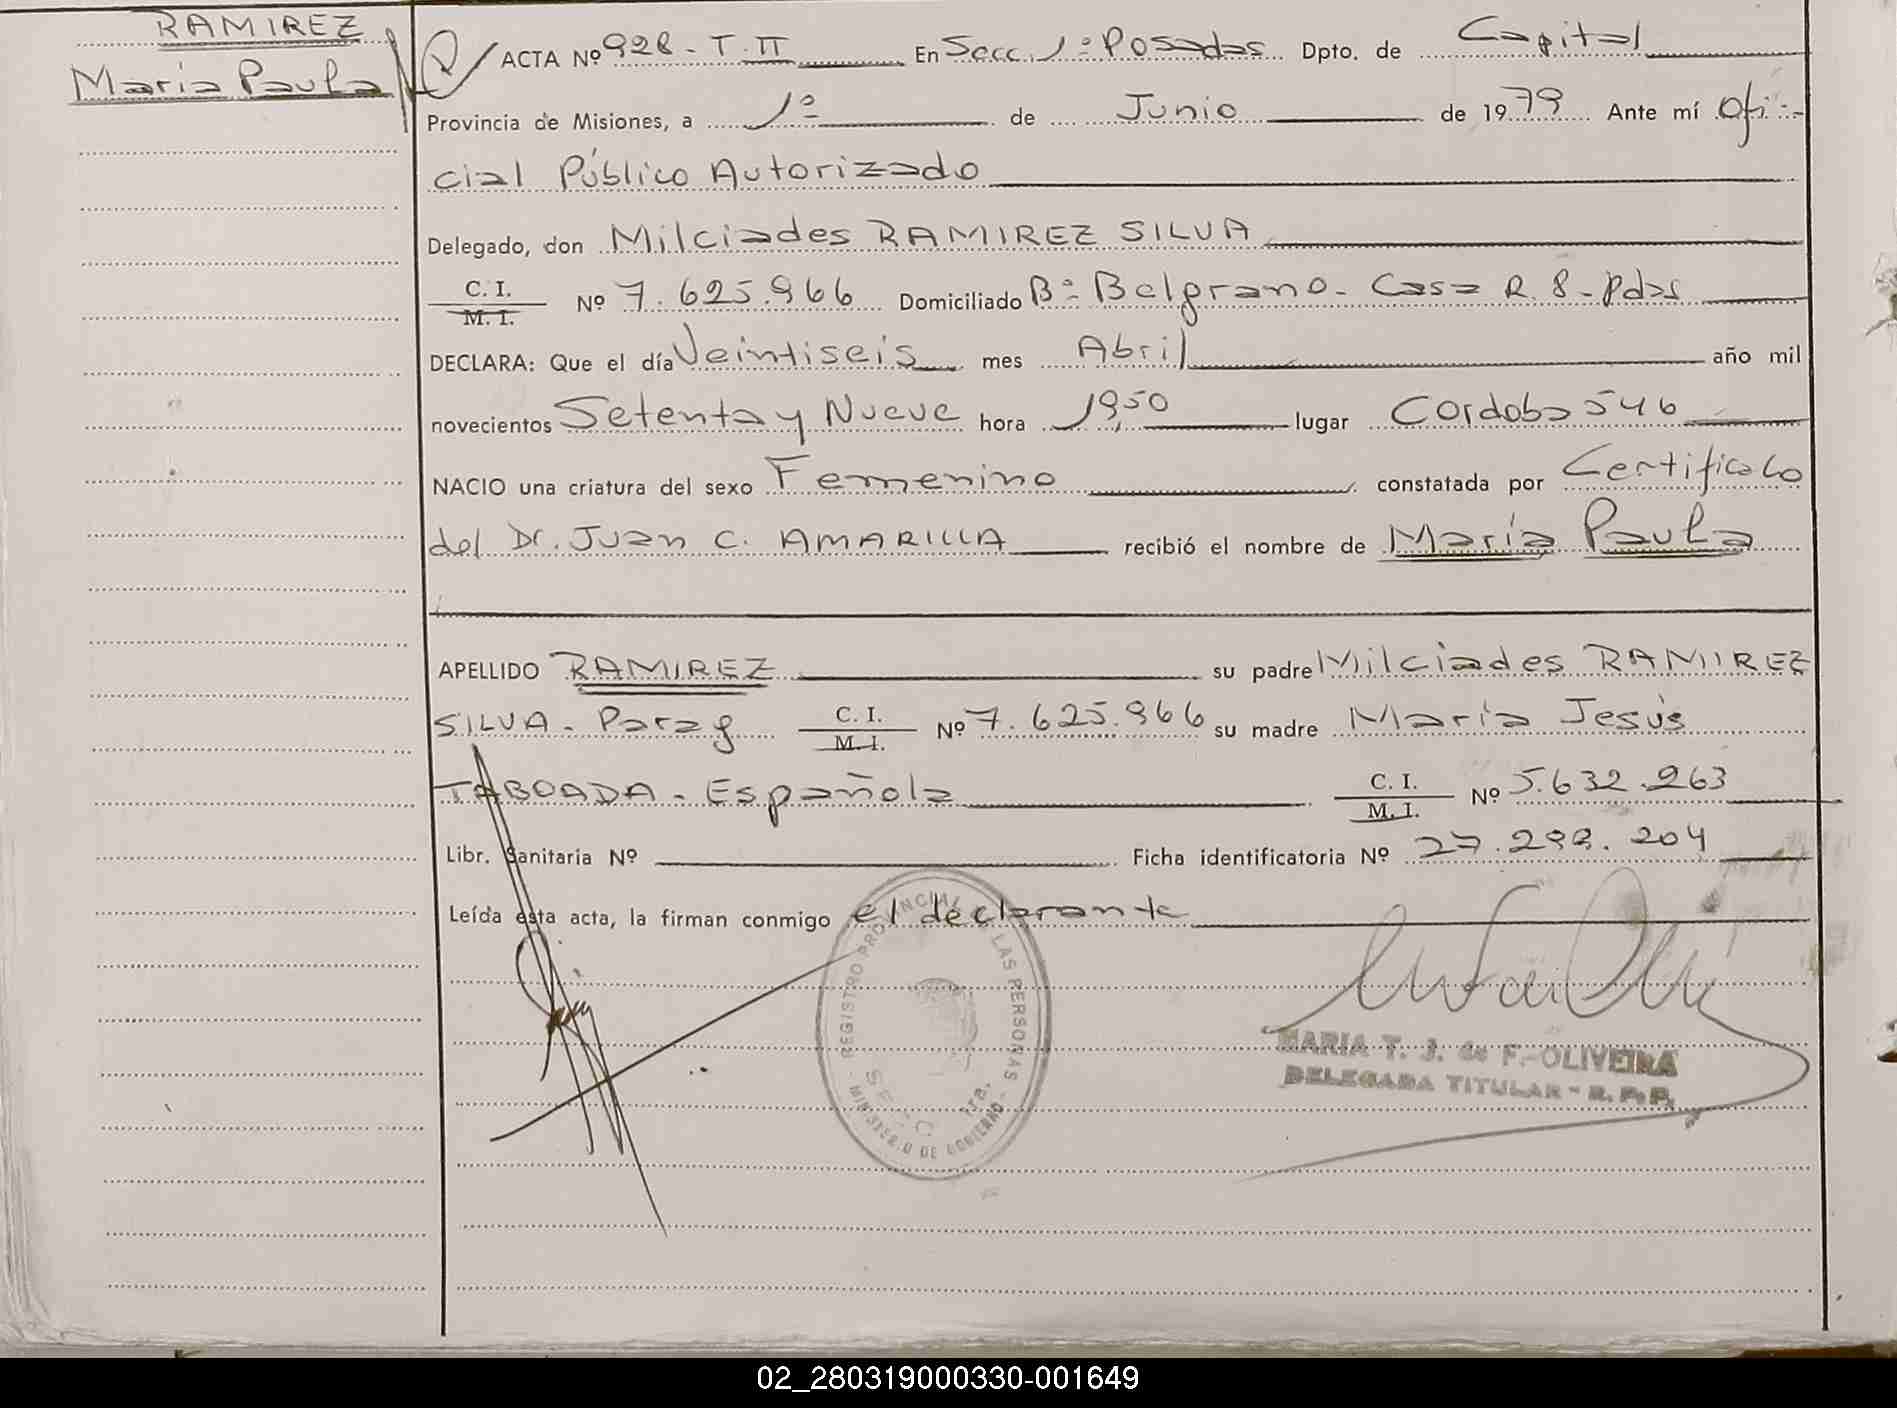 RAMIREZ
María Paula
ACTA Nº 928 - T. II En Secc. 1º Posadas Dpto. de Capital
Provincia de Misiones, a 1º de Junio de 1979 Ante mí Ofi-
cial Público Autorizado
Delegado, don Milciades RAMIREZ SILVA
C. I. / M. I. Nº 7.625.966 Domiciliado Bº Belgrano - Casa R. 8 - Pdas
DECLARA: Que el día Veintiseis mes Abril año mil
novecientos Setenta y Nueve hora 19,50 lugar Cordoba 546
NACIO una criatura del sexo Femenino constatada por Certificado
del Dr. Juan C. AMARILLA recibió el nombre de María Paula
APELLIDO RAMIREZ su padre Milciades RAMIREZ
SILVA - Parag C. I. / M. I. Nº 7.625.966 su madre María Jesús
TABOADA - Española C. I. / M. I. Nº 5.632.263
Libr. Sanitaria Nº Ficha identificatoria Nº 27.298.204
Leída esta acta, la firman conmigo el declarante
REGISTRO PROVINCIAL DE LAS PERSONAS
SECC. 1ra.
MINISTERIO DE GOBIERNO
MARIA T. J. de F. OLIVEIRA
DELEGADA TITULAR - R. P. P.
02_280319000330-001649